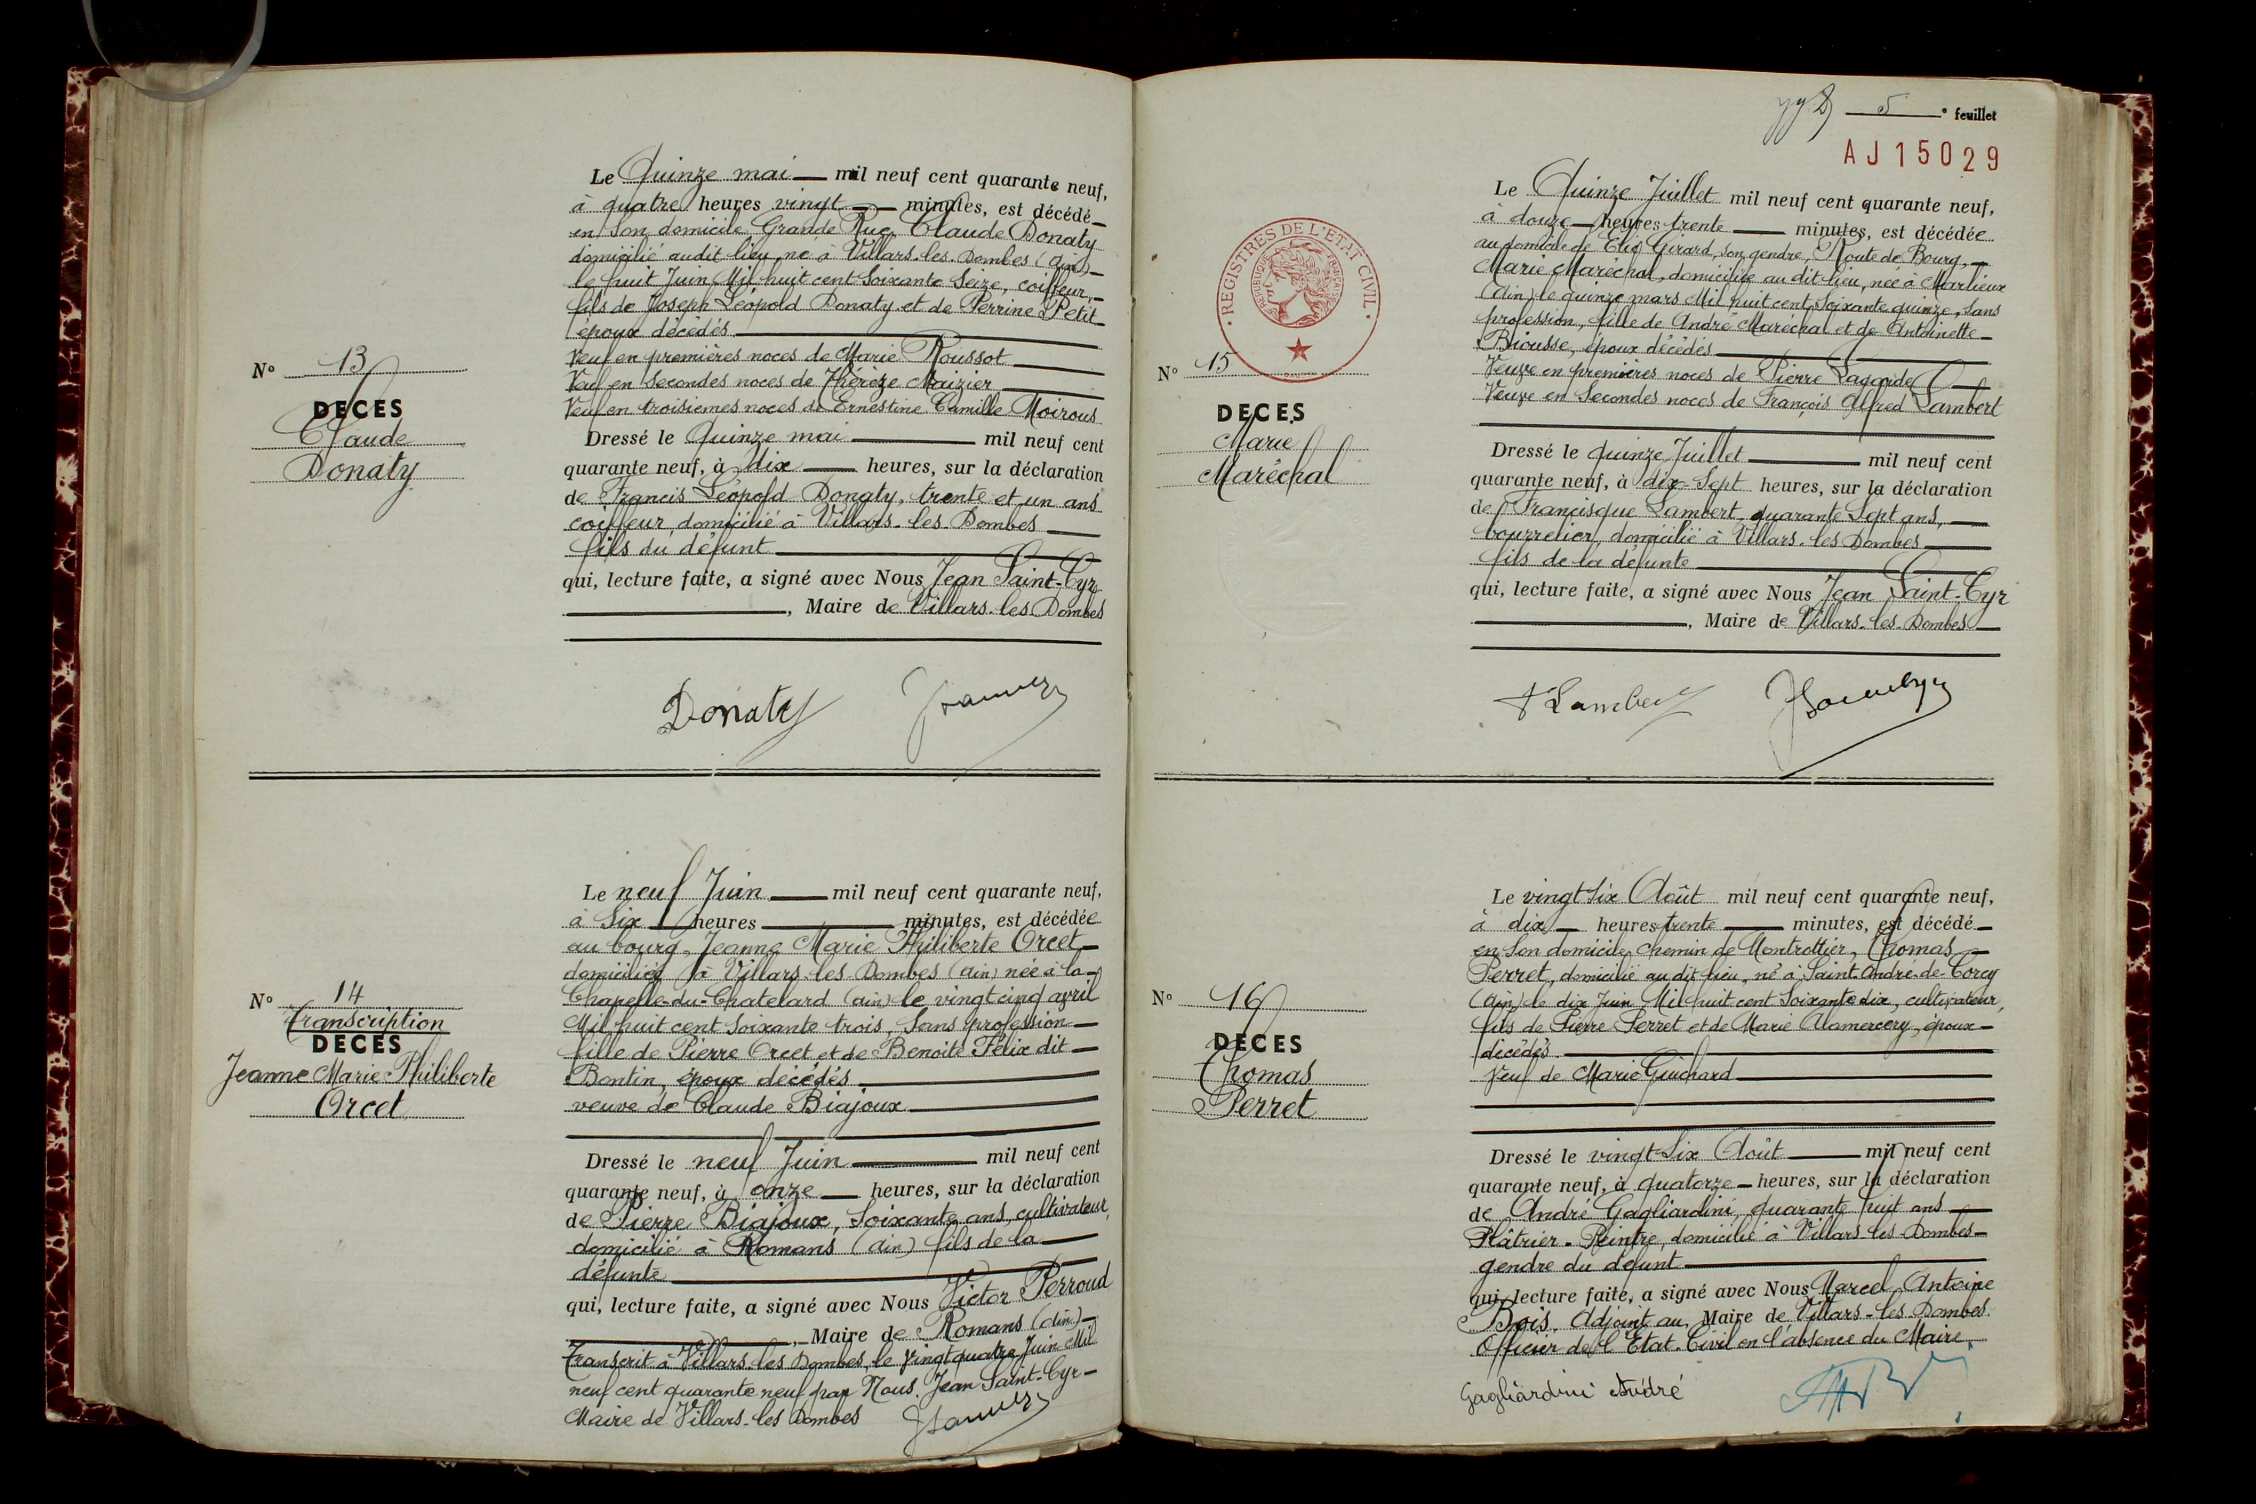 Le Quinze mai mil neuf cent quarante neuf,
à quatre heures vingt minutes, est décédé
en son domicile, Grande Rue, Claude Donaty
domicilié audit lieu, né à Villars-les-Dombes (Ain)
le huit Juin Mil huit cent soixante seize, coiffeur,
fils de Joseph Léopold Donaty et de Perrine Petit
époux décédés
Veuf en premières noces de Marie Roussot
Veuf en secondes noces de Thérèze Maizier
Veuf en troisiemes noces de Ernestine Camille Moirous
N° 13
DECES
Claude
Donaty
Dressé le Quinze mai mil neuf cent
quarante neuf, à dix heures, sur la déclaration
de Francis Léopold Donaty, trente et un ans
coiffeur, domicilié à Villars-les-Dombes
fils du défunt
qui, lecture faite, a signé avec Nous Jean Saint-Cyr
, Maire de Villars-les-Dombes
Donaty
N° 14
Transcription
DECES
Jeanne Marie Philiberte
Orcet
Le neuf Juin mil neuf cent quarante neuf,
à six heures minutes, est décédée
au bourg, Jeanne Marie Philiberte Orcet
domiciliée à Villars-les-Dombes (Ain) née à la
Chapelle-du-Chatelard (Ain) le vingt cinq avril
Mil huit cent soixante trois, sans profession
fille de Pierre Orcet et de Benoite Félix dit
Bontin, époux décédés
veuve de Claude Biajoux
Dressé le neuf Juin mil neuf cent
quarante neuf, à onze heures, sur la déclaration
de Pierre Biajoux, soixante ans, cultivateur,
domicilié à Romans (Ain) fils de la
défunte
qui, lecture faite, a signé avec Nous Victor Perroud
, Maire de Romans (Ain)
Transcrit à Villars-les-Dombes, le vingt quatre Juin Mil
neuf cent quarante neuf par Nous. Jean Saint-Cyr
Maire de Villars-les-Dombes
5 e feuillet
AJ15029
REGISTRES DE L'ETAT CIVIL
REPUBLIQUE FRANÇAISE
Le Quinze Juillet mil neuf cent quarante neuf,
à douze heures trente minutes, est décédée
au domicile de Elie Girard, son gendre, Route de Bourg,
Marie Maréchal, domiciliée au dit lieu, née à Marlieux
(Ain) le quinze mars Mil huit cent soixante quinze, sans
profession, fille de André Maréchal et de Antoinette
Briousse, époux décédés
Veuve en premières noces de Pierre Lagarde
Veuve en Secondes noces de François Alfred Lambert
N° 15
DECES
Marie
Maréchal
Dressé le quinze Juillet mil neuf cent
quarante neuf, à dix-sept heures, sur la déclaration
de Francisque Lambert, quarante sept ans,
bourrelier, domicilié à Villars-les-Dombes
fils de la défunte
qui, lecture faite, a signé avec Nous Jean Saint-Cyr
, Maire de Villars-les-Dombes
F Lambert
N° 16
DECES
Thomas
Perret
Le vingt six Août mil neuf cent quarante neuf,
à dix heures trente minutes, est décédé
en son domicile, chemin de Montrottier, Thomas
Perret, domicilié au dit lieu, né à Saint-André-de-Corcy
(Ain) le dix Juin Mil huit cent soixante dix, cultivateur,
fils de Pierre Perret et de Marie Uamercery, époux
décédés
Veuf de Marie Guichard
Dressé le vingt-six Août mil neuf cent
quarante neuf, à quatorze heures, sur la déclaration
de André Gagliardini, quarante huit ans
Plâtrier-Peintre, domicilié à Villars-les-Dombes
gendre du défunt
qui, lecture faite, a signé avec Nous Marcel Antoine
Bois, Adjoint au Maire de Villars-les-Dombes
Officier de l'Etat-Civil en l'absence du Maire
Gagliardini André